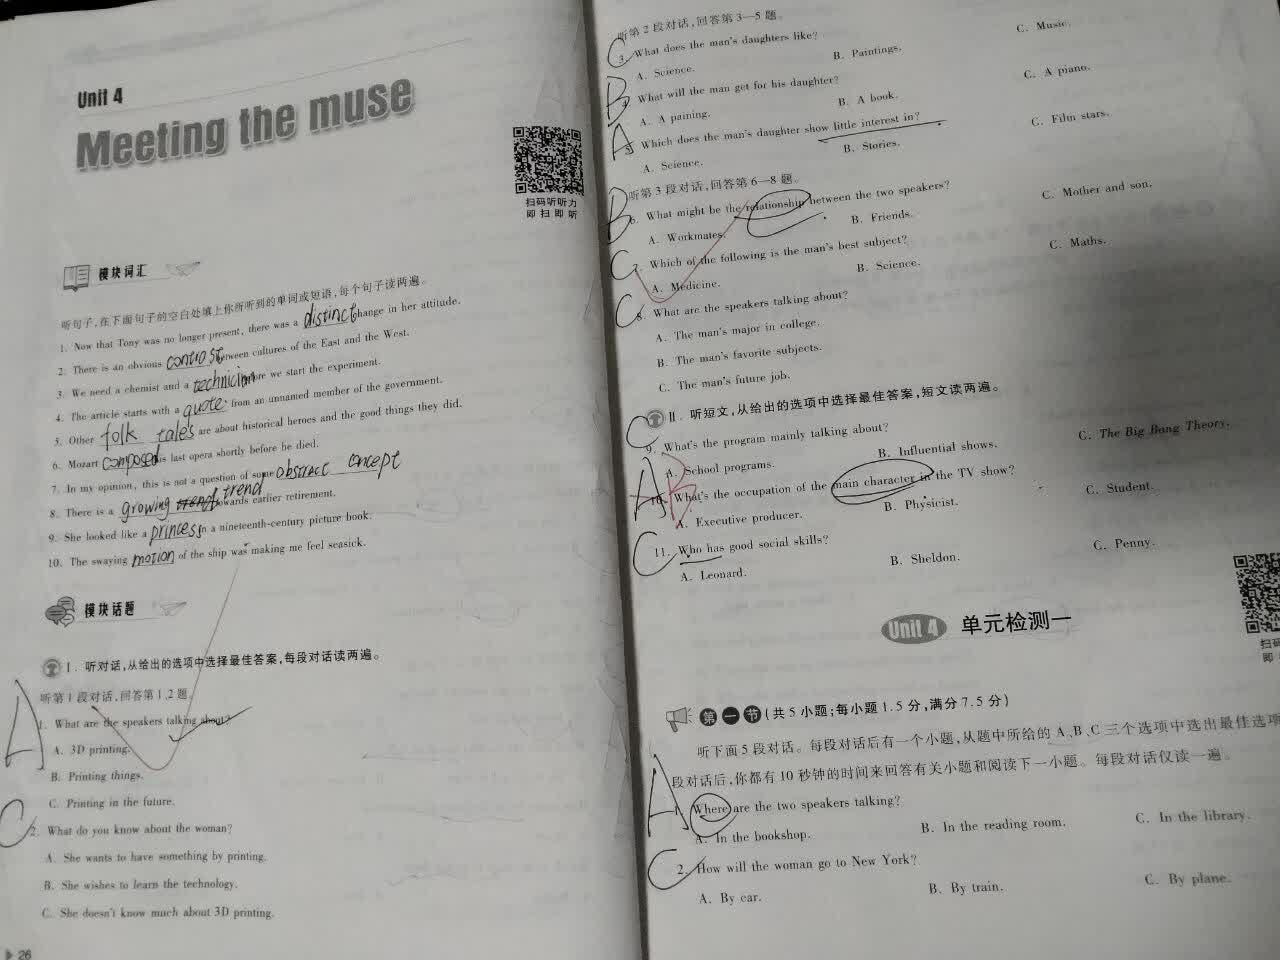 Unit 4
Meeting the muse
扫码听听力
即扫即听
模块词汇
听句子,在下面句子的空白处填上你所听到的单词或短语,每个句子读两遍。
1. Now that Tony was no longer present, there was a distinct change in her attitude.
2. There is an obvious contrast between cultures of the East and the West.
3. We need a chemist and a technician before we start the experiment.
4. The article starts with a quote from an unnamed member of the government.
5. Other folk tales are about historical heroes and the good things they did.
6. Mozart composed his last opera shortly before he died.
7. In my opinion, this is not a question of some abstract concept
8. There is a growing trend trend towards earlier retirement.
9. She looked like a princess in a nineteenth-century picture book.
10. The swaying motion of the ship was making me feel seasick.
模块话题
Ⅰ. 听对话,从给出的选项中选择最佳答案,每段对话读两遍。
听第1段对话,回答第1、2题。
A 1. What are the speakers talking about?
A. 3D printing.
B. Printing things.
C. Printing in the future.
C 2. What do you know about the woman?
A. She wants to have something by printing.
B. She wishes to learn the technology.
C. She doesn't know much about 3D printing.
26
听第2段对话,回答第3—5题。
C 3. What does the man's daughters like?
A. Science. B. Paintings. C. Music.
B 4. What will the man get for his daughter?
A. A paining. B. A book. C. A piano.
A 5. Which does the man's daughter show little interest in?
A. Science. B. Stories. C. Film stars.
听第3段对话,回答第6—8题。
B 6. What might be the relationship between the two speakers?
A. Workmates. B. Friends. C. Mother and son.
C 7. Which of the following is the man's best subject?
A. Medicine. B. Science. C. Maths.
C 8. What are the speakers talking about?
A. The man's major in college.
B. The man's favorite subjects.
C. The man's future job.
Ⅱ. 听短文,从给出的选项中选择最佳答案,短文读两遍。
C 9. What's the program mainly talking about?
A. School programs. B. Influential shows. C. The Big Bang Theory.
A B 10. What's the occupation of the main character in the TV show?
A. Executive producer. B. Physicist. C. Student.
C 11. Who has good social skills?
A. Leonard. B. Sheldon. C. Penny.
Unit 4 单元检测一
扫码
即
第一节 (共5小题;每小题1.5分,满分7.5分)
听下面5段对话。每段对话后有一个小题,从题中所给的A、B、C三个选项中选出最佳选项
段对话后,你都有10秒钟的时间来回答有关小题和阅读下一小题。每段对话仅读一遍。
A 1. Where are the two speakers talking?
A. In the bookshop. B. In the reading room. C. In the library.
C 2. How will the woman go to New York?
A. By car. B. By train. C. By plane.